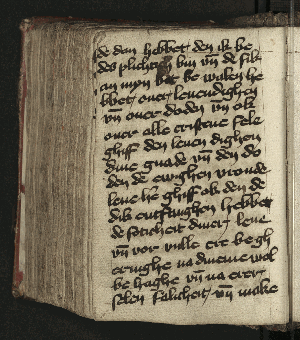 de dem hebbet den ik be
des plichtich bin vn̄ de sik
an myn bet be walen he
bbet ouer leuendighen
vn̄ ouer doden vn̄ ok
ouer alle cristene sele
ghiff den leuen dighen
dine gnade vn̄ den do
den de ewighen vroude
leue he ghiff ok den de
dyt entfanghen hebbet
de salicheit diner leue
vn̄ vor wille ere begh
eringhe na dineme wol
be haghe vn̄ na erer
selen salicheit vn̄ make